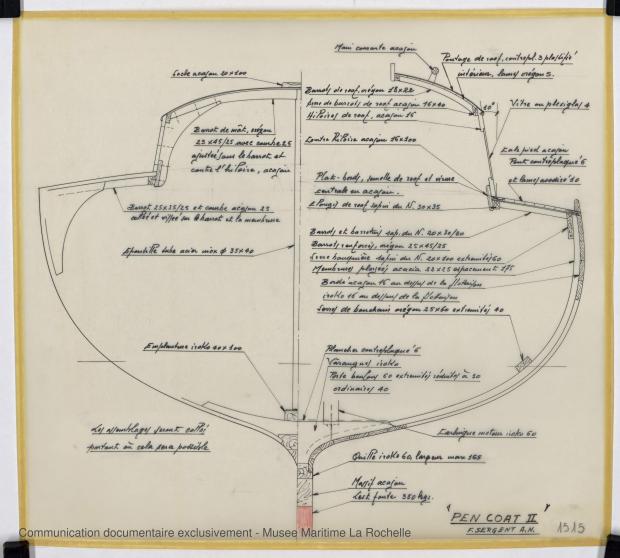 Main courante acajou
Pontage de roof, contrepl. 5 plastifié
intérieur, lames orégon 5.
Socle acajou 20x100
Barrots de roof, orégon 18x22
de barrots de roof acajou 16x40
Hiloires de roof, acajou 16
10°
Vitre en plexiglas 4
Barrot de mât, orégon
23x45/25 avec courbe 25
ajustés sous le barrot et
contre l'hiloire, acajou
Contre hiloire acajou 16x100
Cale pied acajou
Pont contreplaqué 6
et lames 10
Plat-bords, semelle de roof et virure
centrale en acajou.
Elongis de roof sapin du N. 30x35
Barrot 25x35/25 et courbe acajou 23
collée et vissée sur barrot et la membrure
Barrots et barrotins sap. du N. 20x30/20
Barrots renforcés, orégon 25x45/25
Serre bauquière sapin du N. 20x100 extremités 60
Membrures ployées acacia 22x25 espacement 175
Bordé acajou 16 au dessus de la flottaison
iroko 16 au dessous de la flottaison
Serres de bouchain orégon 25x60 extremités 40
Epontille tube acier inox ϕ 35x40
Emplanture iroko 40x100
Plancher contreplaqué 6
Varangues iroko
Porte boulons 60 extremités réduites à 50
ordinaires 40
Les assemblages seront collés
partout où cela sera possible
Carlingue moteur iroko 60
Quille iroko 60, largeur max 165
Massif acajou
Lest fonte 350 kgs.
"PEN COAT II"
F. SERGENT A.N.
1515
Communication documentaire exclusivement - Musee Maritime La Rochelle